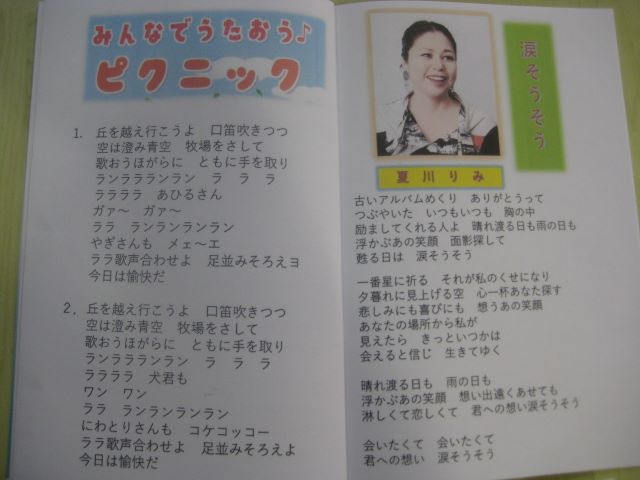 みんなでうたおう♪
ピクニック
1. 丘を越え行こうよ 口笛吹きつつ
空は澄み青空 牧場をさして
歌おうほがらに ともに手を取り
ランララランラン ラ ラ ラ
ララララ あひるさん
ガァ～ ガァ～
ララ ランランランラン
やぎさんも メェ～エ
ララ歌声合わせよ 足並みそろえヨ
今日は愉快だ
2. 丘を越え行こうよ 口笛吹きつつ
空は澄み青空 牧場をさして
歌おうほがらに ともに手を取り
ランララランラン ラ ラ ラ
ララララ 犬君も
ワン ワン
ララ ランランランラン
にわとりさんも コケコッコー
ララ歌声合わせよ 足並みそろえよ
今日は愉快だ
涙そうそう
夏川りみ
古いアルバムめくり ありがとうって
つぶやいた いつもいつも 胸の中
励ましてくれる人よ 晴れ渡る日も雨の日も
浮かぶあの笑顔 面影探して
甦る日は 涙そうそう
一番星に祈る それが私のくせになり
夕暮れに見上げる空 心一杯あなた探す
悲しみにも喜びにも 想うあの笑顔
あなたの場所から私が
見えたら きっといつかは
会えると信じ 生きてゆく
晴れ渡る日も 雨の日も
浮かぶあの笑顔 想い出遠くあせても
淋しくて恋しくて 君への想い涙そうそう
会いたくて 会いたくて
君への想い 涙そうそう